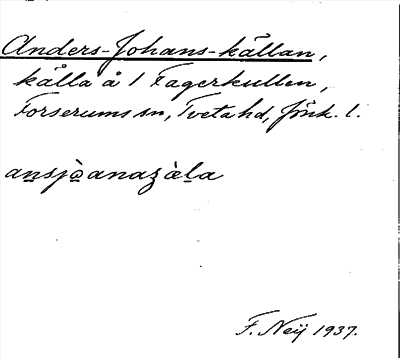 Anders-Johans-källan,
källa å 1 Fagerkullen,
Forserums sn, Tveta hd, Jönk. l.
ansjòanazàla
F. Neij 1937.